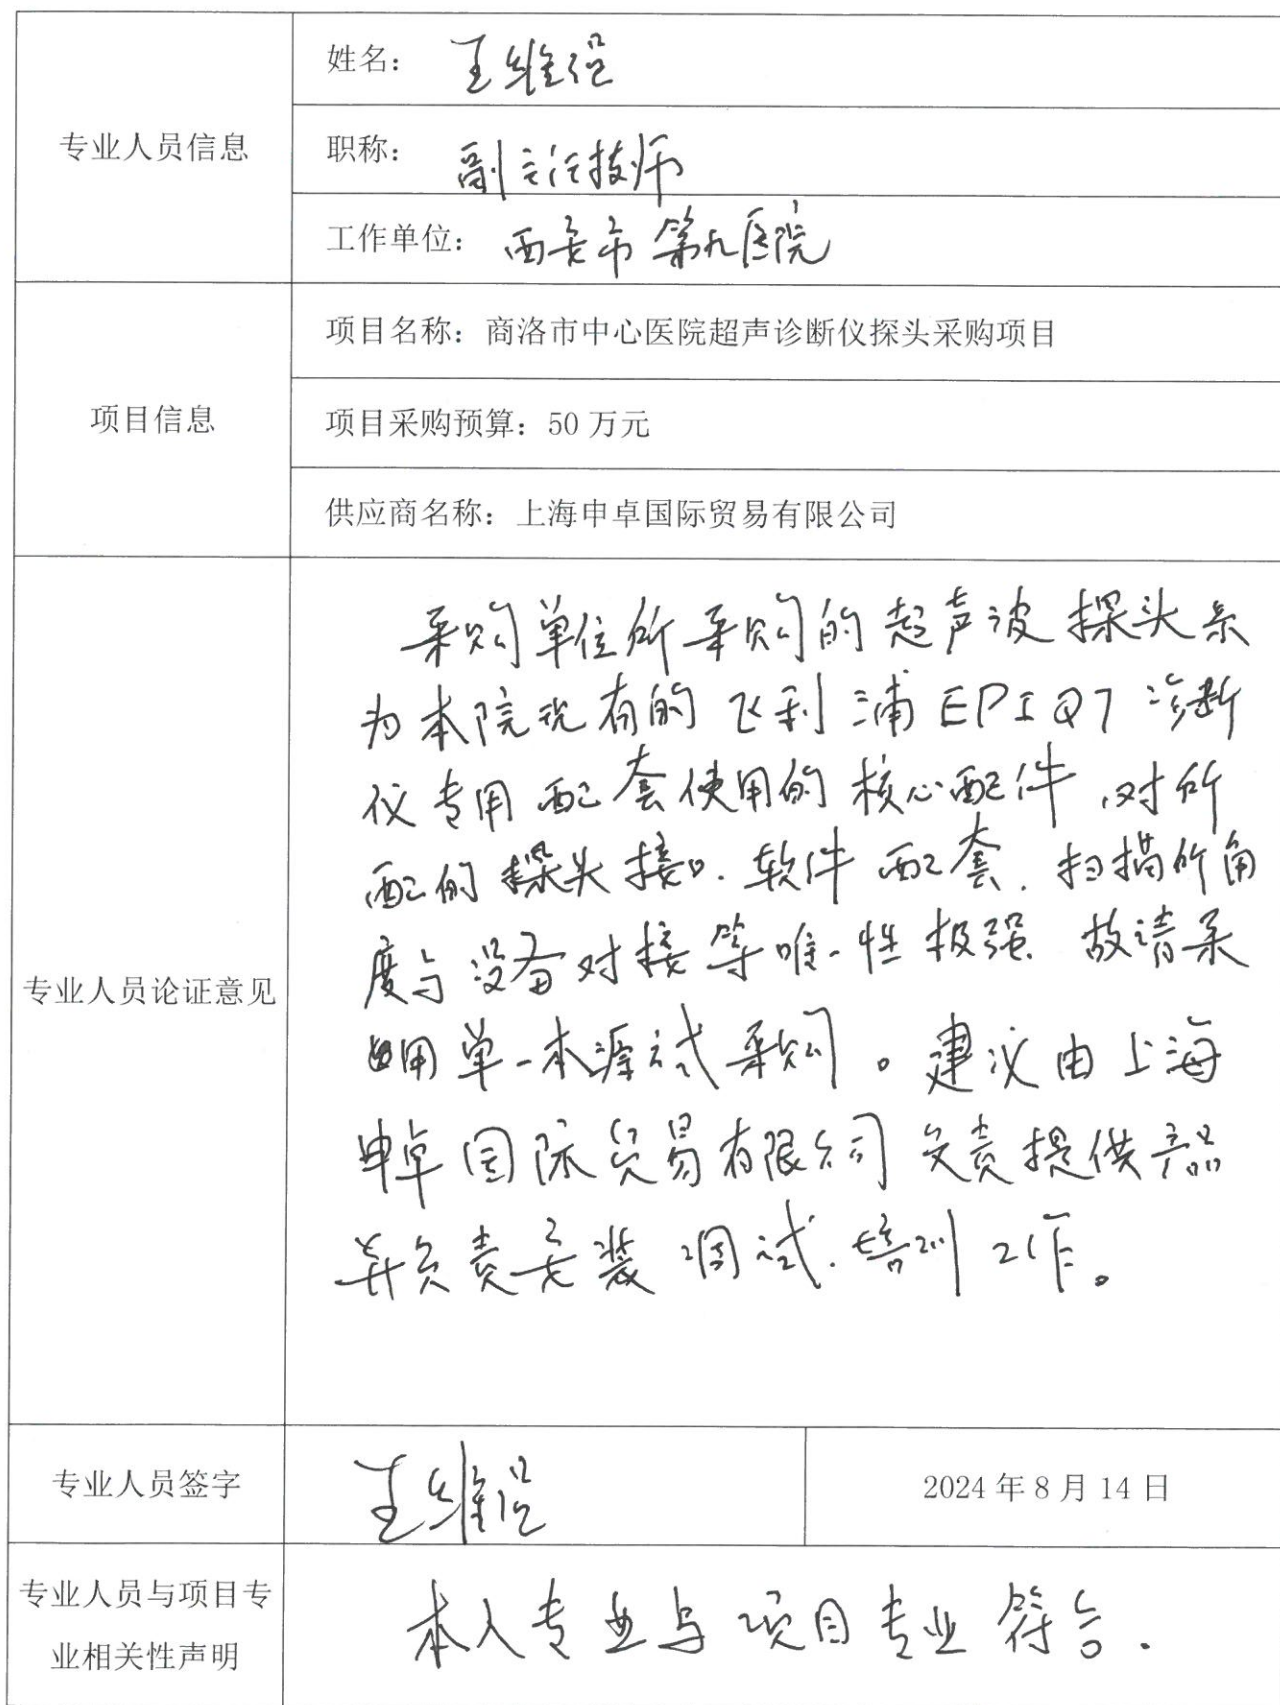 专业人员信息
姓名：王维
职称：副主任技师
工作单位：西安市第九医院
项目信息
项目名称：商洛市中心医院超声诊断仪探头采购项目
项目采购预算：50 万元
供应商名称：上海申卓国际贸易有限公司
专业人员论证意见
采购单位所采购的超声波探头系
为本院现有的飞利浦EPIQ7诊断
仪专用配套使用的核心配件，对所
配的探头接口、软件配套、扫描所角
度与设备对接等唯一性极强 故请采
用单一本源式采购。建议由上海
申卓国际贸易有限公司负责提供产品
并负责安装调试、培训工作。
专业人员签字
王维
2024 年 8 月 14 日
专业人员与项目专
业相关性声明
本人专业与项目专业符合.